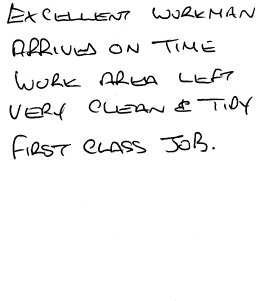 EXCELLENT WORKMAN
ARRIVED ON TIME
WORK AREA LEFT
VERY CLEAN & TIDY
FIRST CLASS JOB.